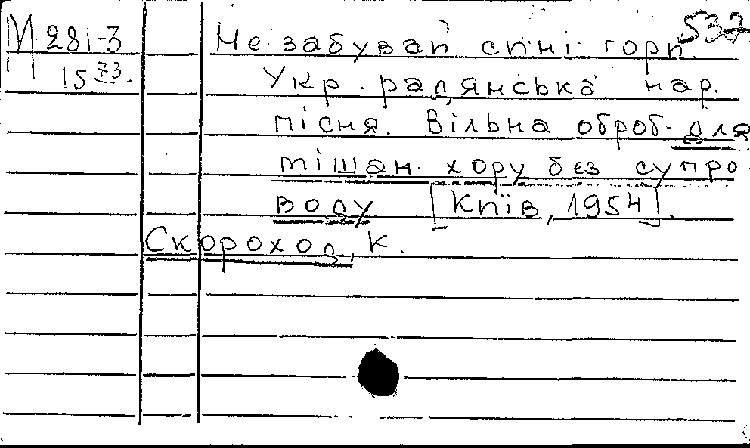 М 281-3
1573.
532
Не забувай сині гори.
Укр. радянська нар.
пісня. Вільна оброб. для
мішан. хору без супро
воду [Київ, 1954].
Скороход, К.